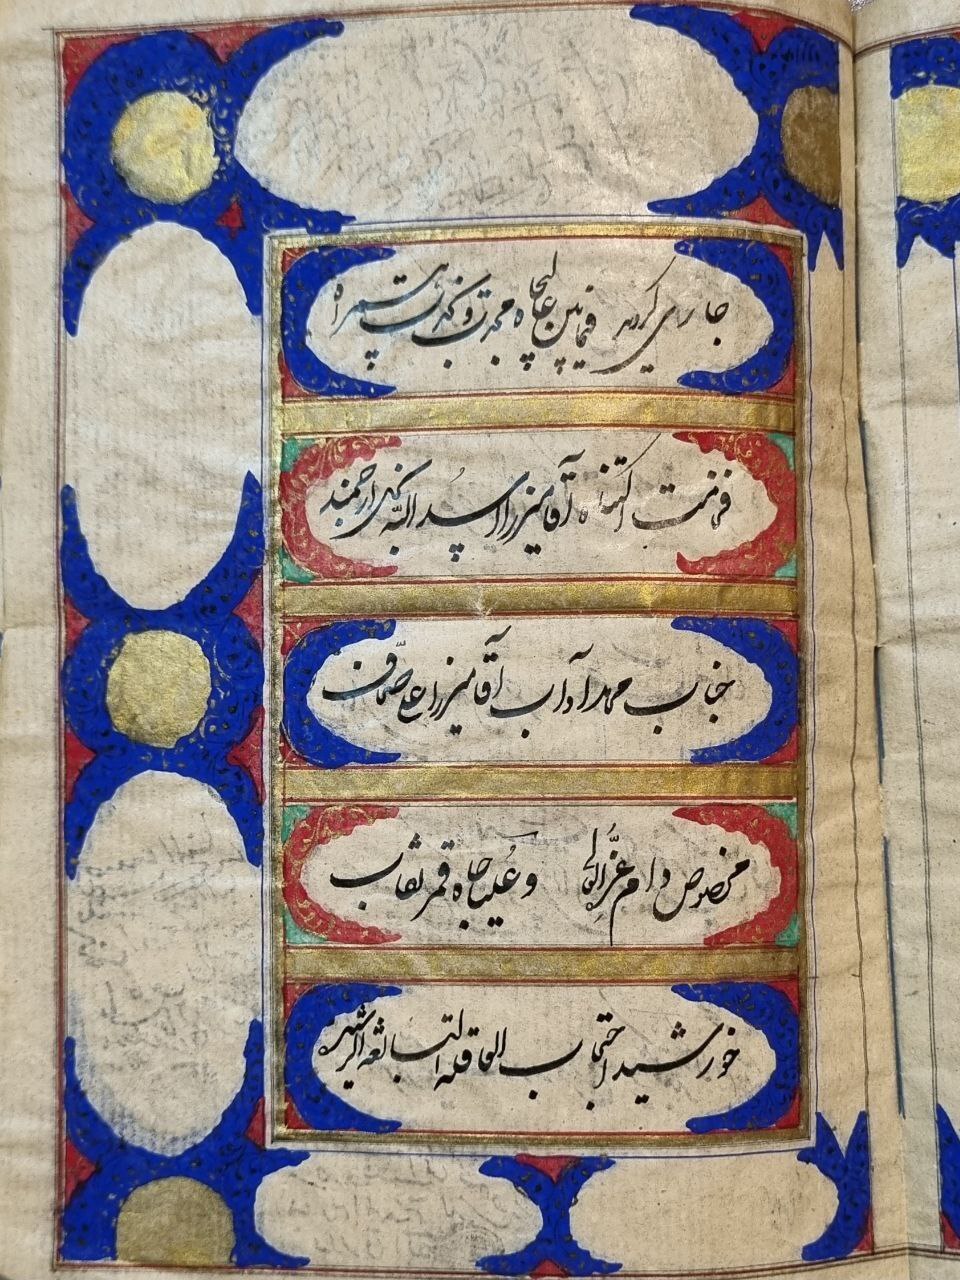 جاری گردید فیمابین عالیجاه مجدت و نجدت همراه
فخامت اکتناه آقا میرزا اسدالله نجل ارجمند
جناب محمدآداب آقا میرزا علی صحاف
مخصوص دام عزه العالی و علیاجاه قمر نقاب
خورشید احتجاب العاقله البالغه الرشیده